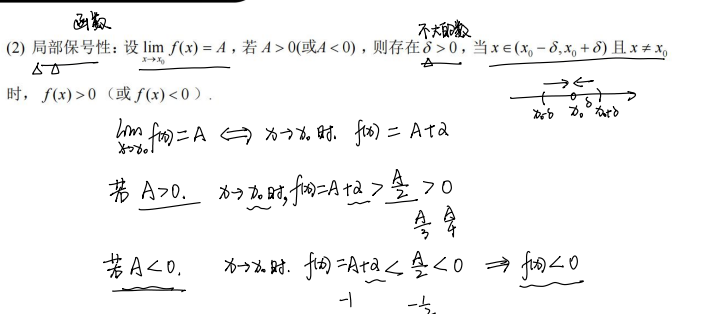 函数
不大的数
(2) 局部保号性：设 lim f(x) = A，若 A > 0(或A < 0)，则存在 δ > 0，当 x ∈ (x₀ − δ, x₀ + δ) 且 x ≠ x₀
x→x₀
时，f(x) > 0（或 f(x) < 0）.
x₀-δ x₀ δ x₀+δ
lim f(x) = A ⟺ x→x₀ 时. f(x) = A+α
x→x₀
若 A>0. x→x₀时, f(x)=A+α > A/2 > 0
A/3 A/4
若 A<0. x→x₀时. f(x)=A+α < A/2 < 0 ⇒ f(x)<0
-1 -1/2